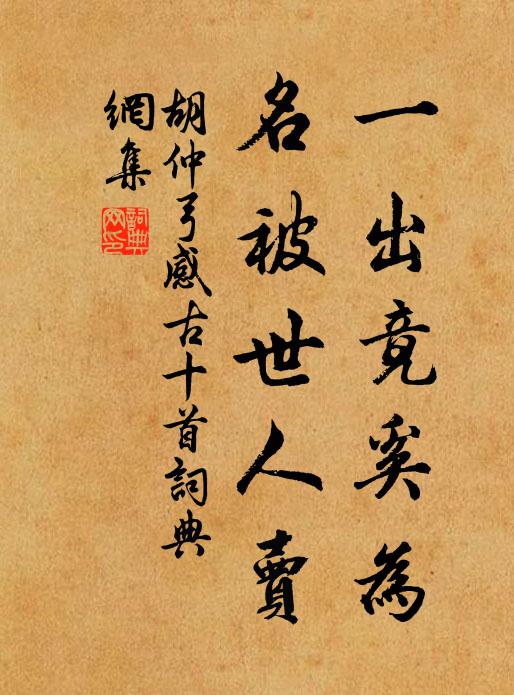 一出竟奚為
名被世人賣
胡仲弓感古十首詞典
網集
詞典
网印